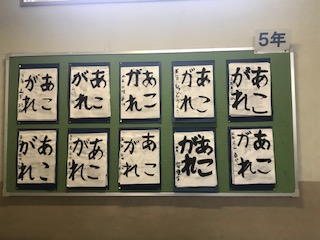 5年
あこ
がれ
あこ
がれ
あこ
がれ
あこ
がれ
あこ
がれ
あこ
がれ
あこ
がれ
あこ
がれ
あこ
がれ
あこ
がれ